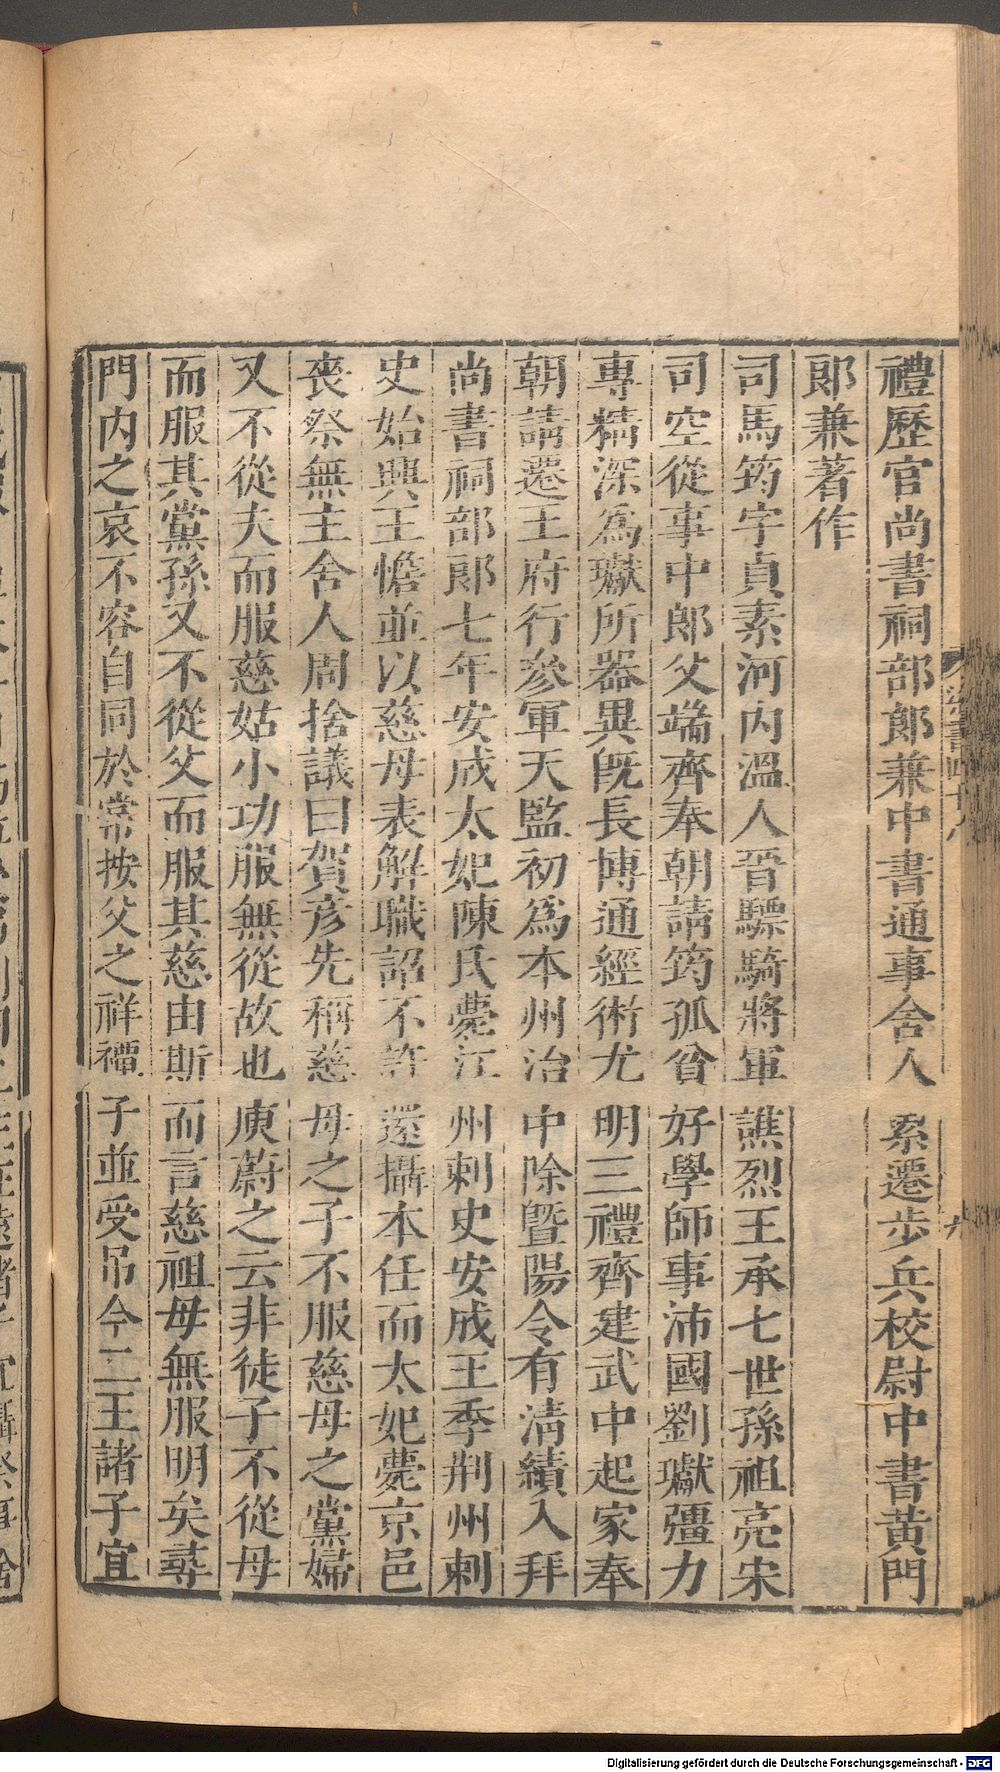 禮歷官尚書祠部郎兼中書通事舍人累遷步兵校尉中書黄門
郎兼著作
司馬筠字貞素河内温人晉驃騎將軍譙烈王承七世孫祖亮宋
司空從事中郎父端齊奉朝請筠孤貧好學師事沛國劉瓛彊力
專精深為瓛所器異既長博通經術尤明三禮齊建武中起家奉
朝請遷王府行參軍天監初為本州治中除曁陽令有清績入拜
尚書祠部郎七年安成太妃陳氏薨江州刺史安成王季荆州刺
史始興王憺並以慈母表解職詔不許還攝本任而太妃薨京邑
喪祭無主舍人周捨議曰賀彦先稱慈母之子不服慈母之黨婦
又不從夫而服慈姑小功服無從故也庾蔚之云非徒子不從母
而服其黨孫又不從父而服其慈由斯而言慈祖母無服明矣尋
門内之哀不容自同於常按父之祥禫子並受吊今二王諸子宜
Digitalisierung gefördert durch die Deutsche Forschungsgemeinschaft - DFG